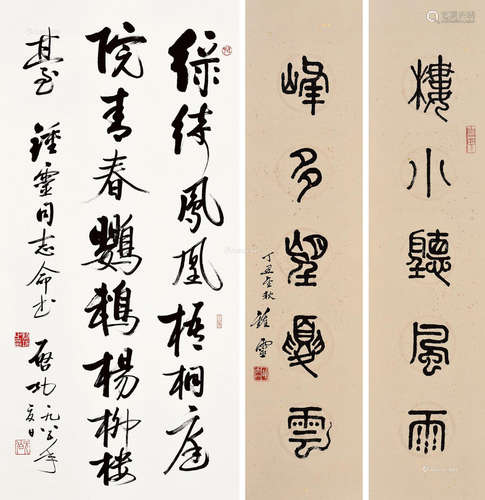 樓小聽風雨
峰多望夏雲
丁丑金秋
鍾靈
綠綺鳳凰梧桐庭
院青春鸚鵡楊柳樓
臺 鍾靈同志命書
啟功 一九八年
夏日